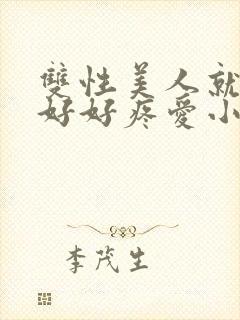 雙性美人就
好好疼愛小
李茂生